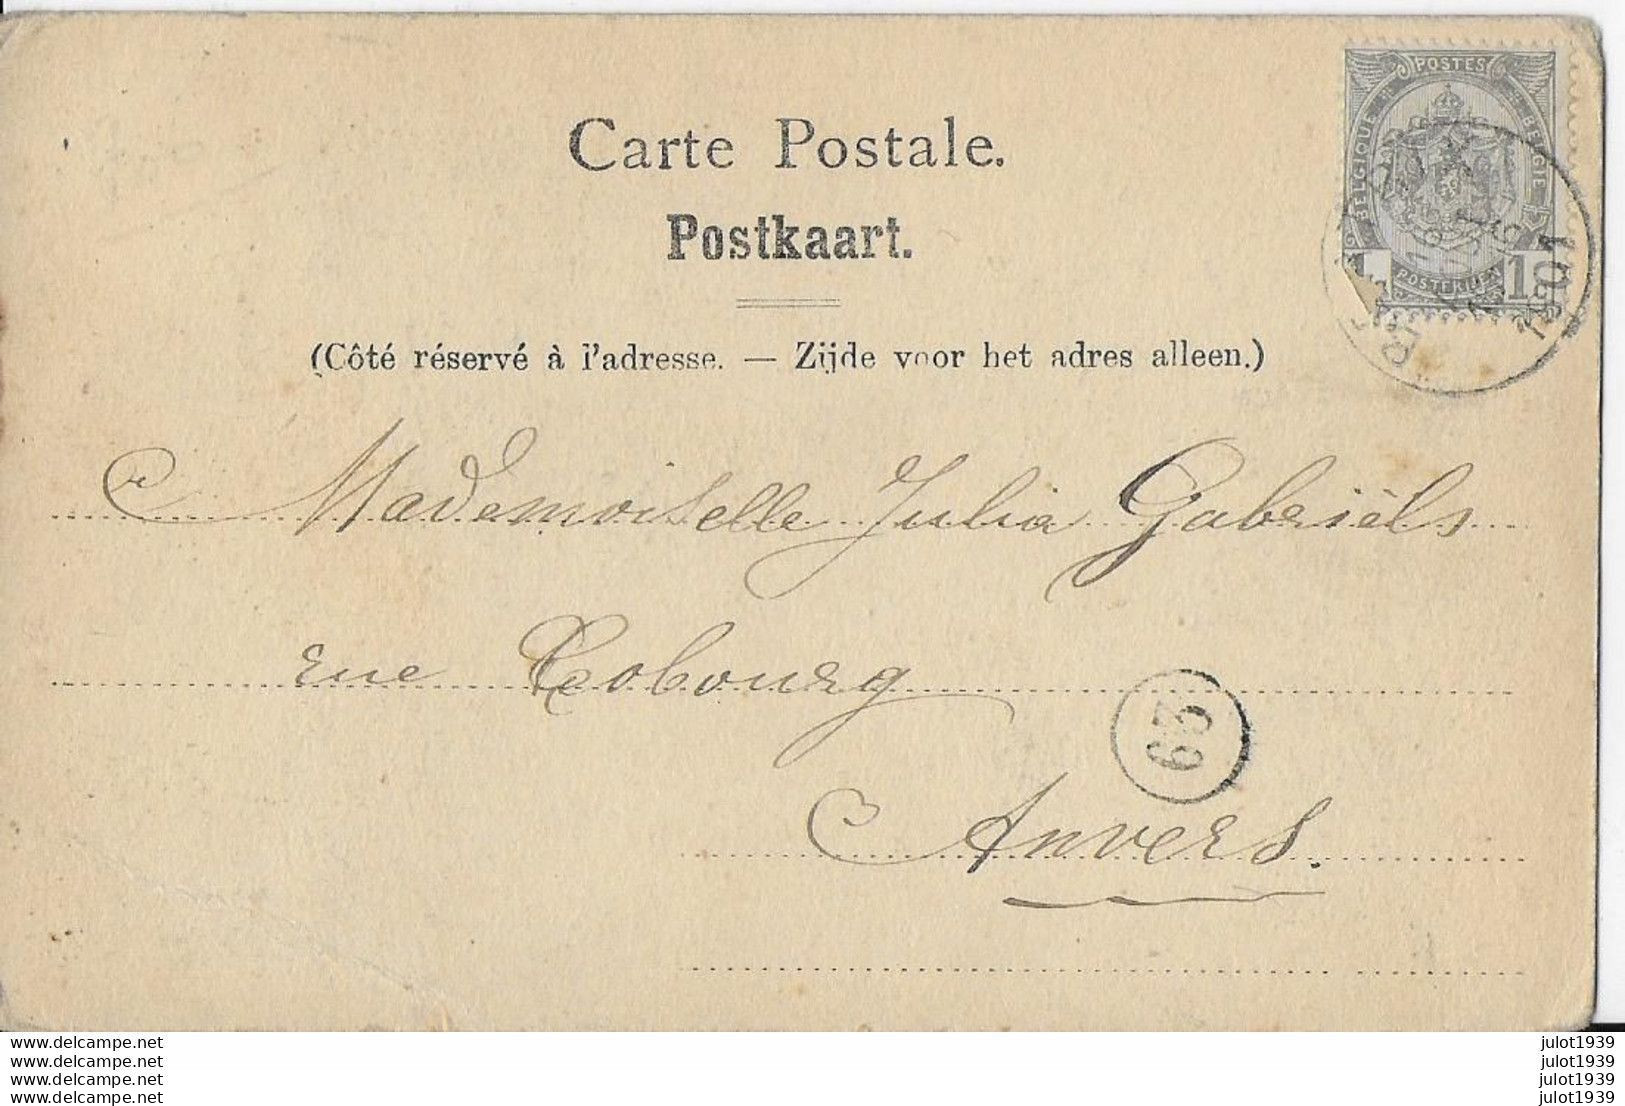 Carte Postale.
Postkaart.
(Côté réservé à l'adresse. — Zijde voor het adres alleen.)
POSTES
BELGIQUE
BELGIE
POSTERIJEN
1
1901
Mademoiselle Julia Gabriëls
rue Cobourg
29
Anvers.
www.delcampe.net
www.delcampe.net
www.delcampe.net
www.delcampe.net
julot1939
julot1939
julot1939
julot1939